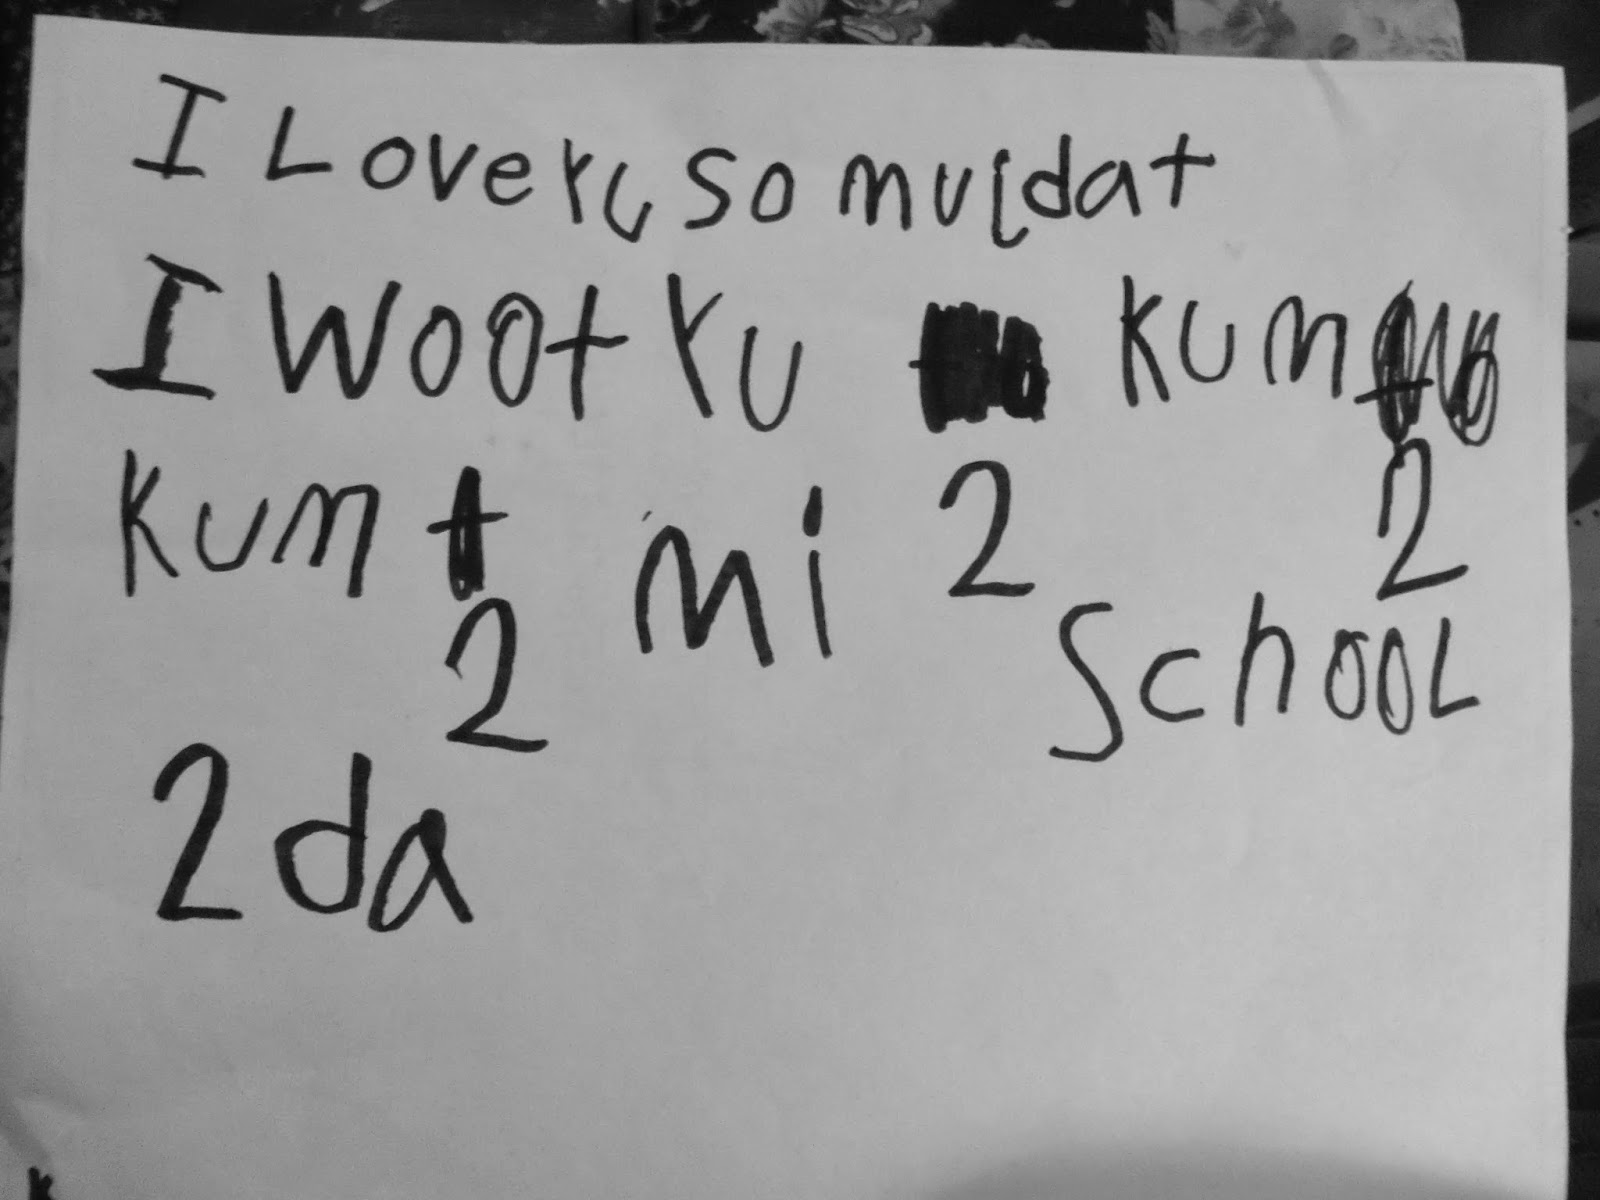 I Love Yu so muc dat
I Woot Yu 2 Kum 2
Kum 2 mi School
2da